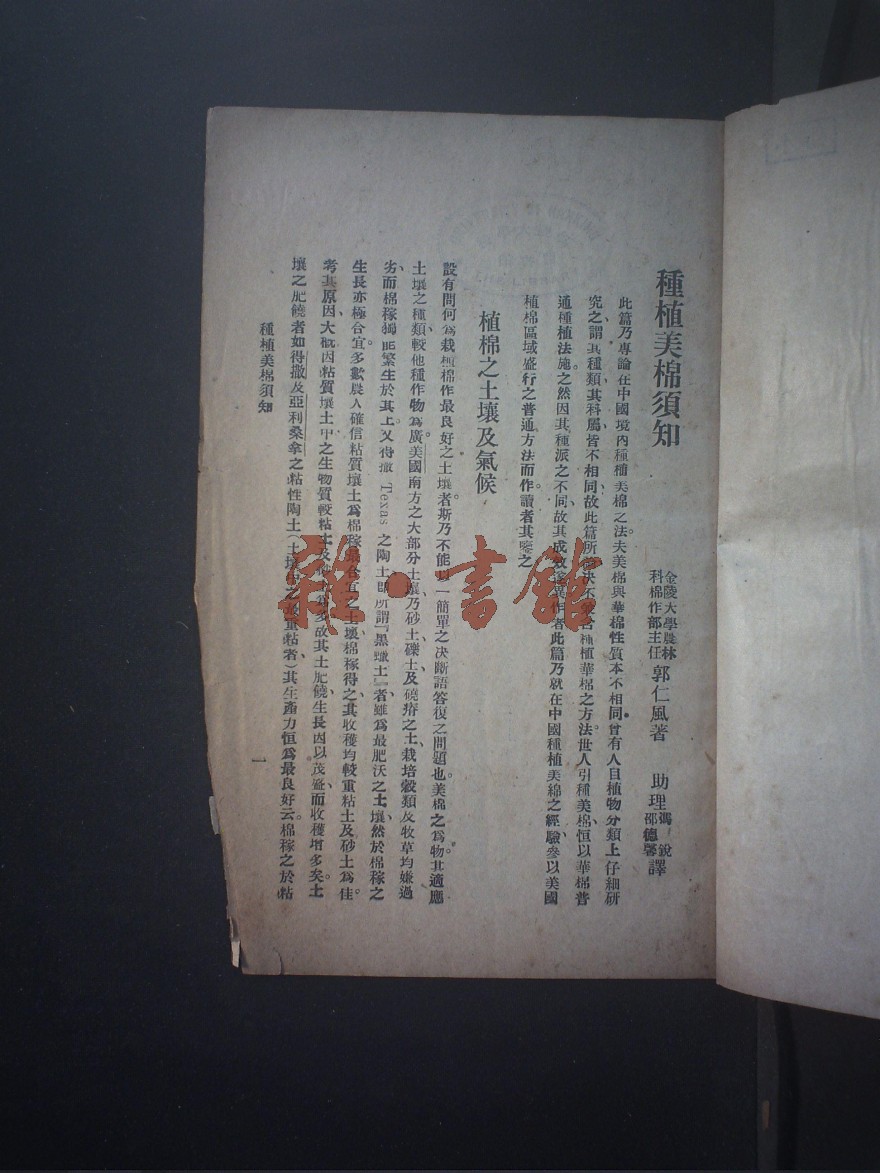 種植美棉須知
金陵大學農林
科棉作部主任
郭仁風著
助理
馮銳
邵德馨
譯
此篇乃專論在中國境內種植美棉之法。夫美棉與華棉性質本不相同。曾有人自植物分類上仔細研
究之、謂其種類其科屬皆不相同、故此篇所 決不 合種植華棉之方法。世人引種美棉、恒以華棉普
通種植法施之、然因其種派之不同、故其成效 異、作者此篇乃就在中國種植美綿之經驗、參以美國
植棉區域盛行之普通方法而作、讀者其鑒之
植棉之土壤及氣候
設有問何爲栽種棉作最良好之土壤者、斯乃不能以一簡單之決斷語答復之問題也。美棉之爲物、其適應
土壤之種類、較他種作物爲廣。美國南方之大部分土壤、乃砂土、礫土、及磽瘠之土、栽培穀類及牧草均嫌過
劣、而棉稼獨能繁生於其上。又得撒 Texas 之陶土、即所謂『黑蠟土』者、雖爲最肥沃之土壤、然於棉稼之
生長亦極合宜。多數農人確信粘質壤土爲棉稼最合宜之土壤、棉稼得之、其收穫均較重粘土及砂土爲佳。
考其原因、大概因粘質壤土中之生物質較粘土及 爲多、故其土肥饒、生長因以茂盛、而收穫增多矣。土
壤之肥饒者、如得撒及亞利桑拿之粘性陶土（土壤中之最重粘者）其生產力恒爲最良好云。棉稼之於粘
種植美棉須知
一
雜·書館